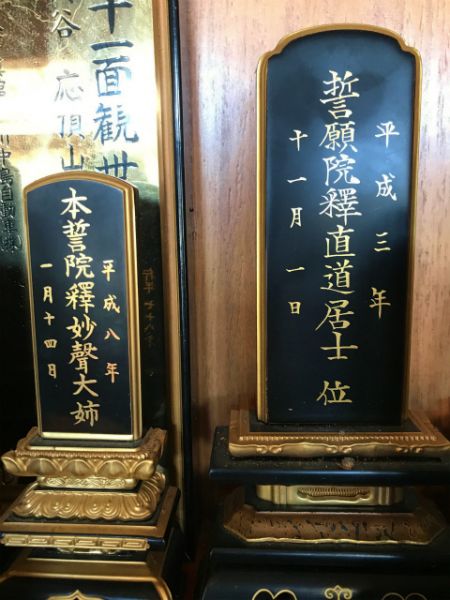 誓願院釋直道居士 位
平成三年
十一月一日
本誓院釋妙聲大姉
平成八年
一月十四日
十一面観世
谷 応頂山